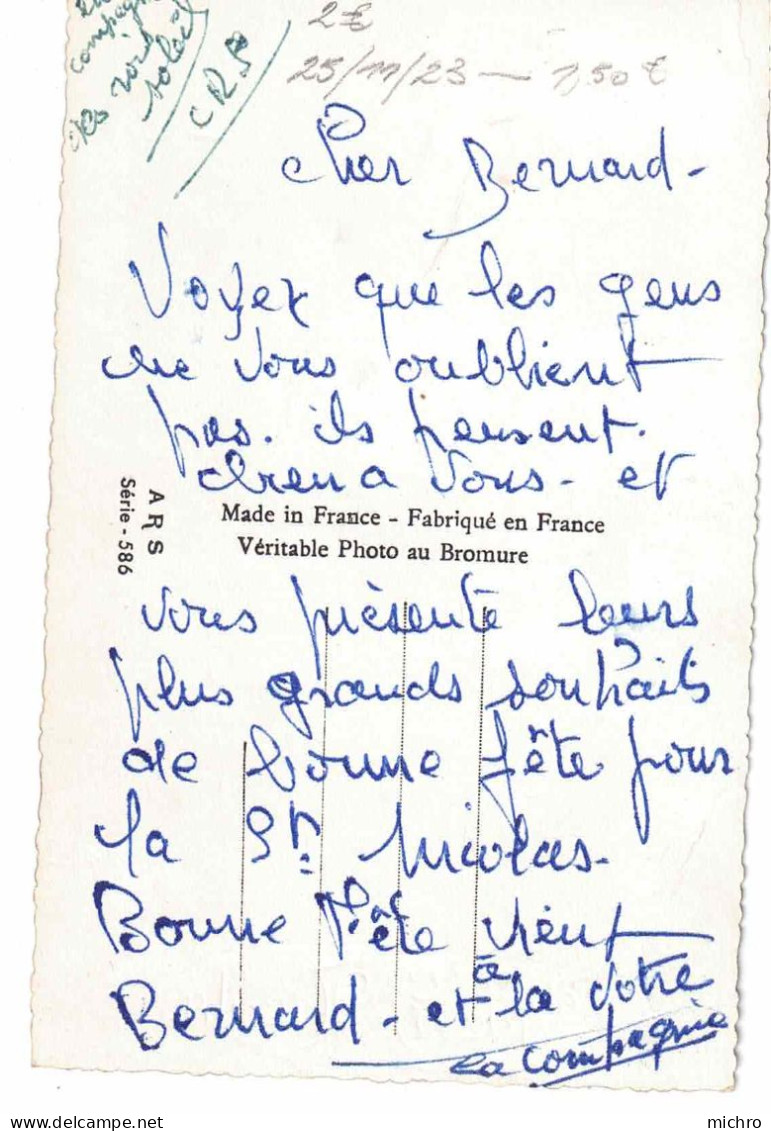 compagnie
des rois
soleil
C.R.S
2€
25/11/23 — 1,50€
Cher Bernard -
Voyez que les gens
ne vous oublient
pas. ils pensent.
bien a vous - et
ARS
Série - 586
Made in France - Fabriqué en France
Véritable Photo au Bromure
vous présente leurs
plus grands souhaits
de bonne fête pour
la St Nicolas -
Bonne Fête
Bernard - et à la votre
la compagnie
michro